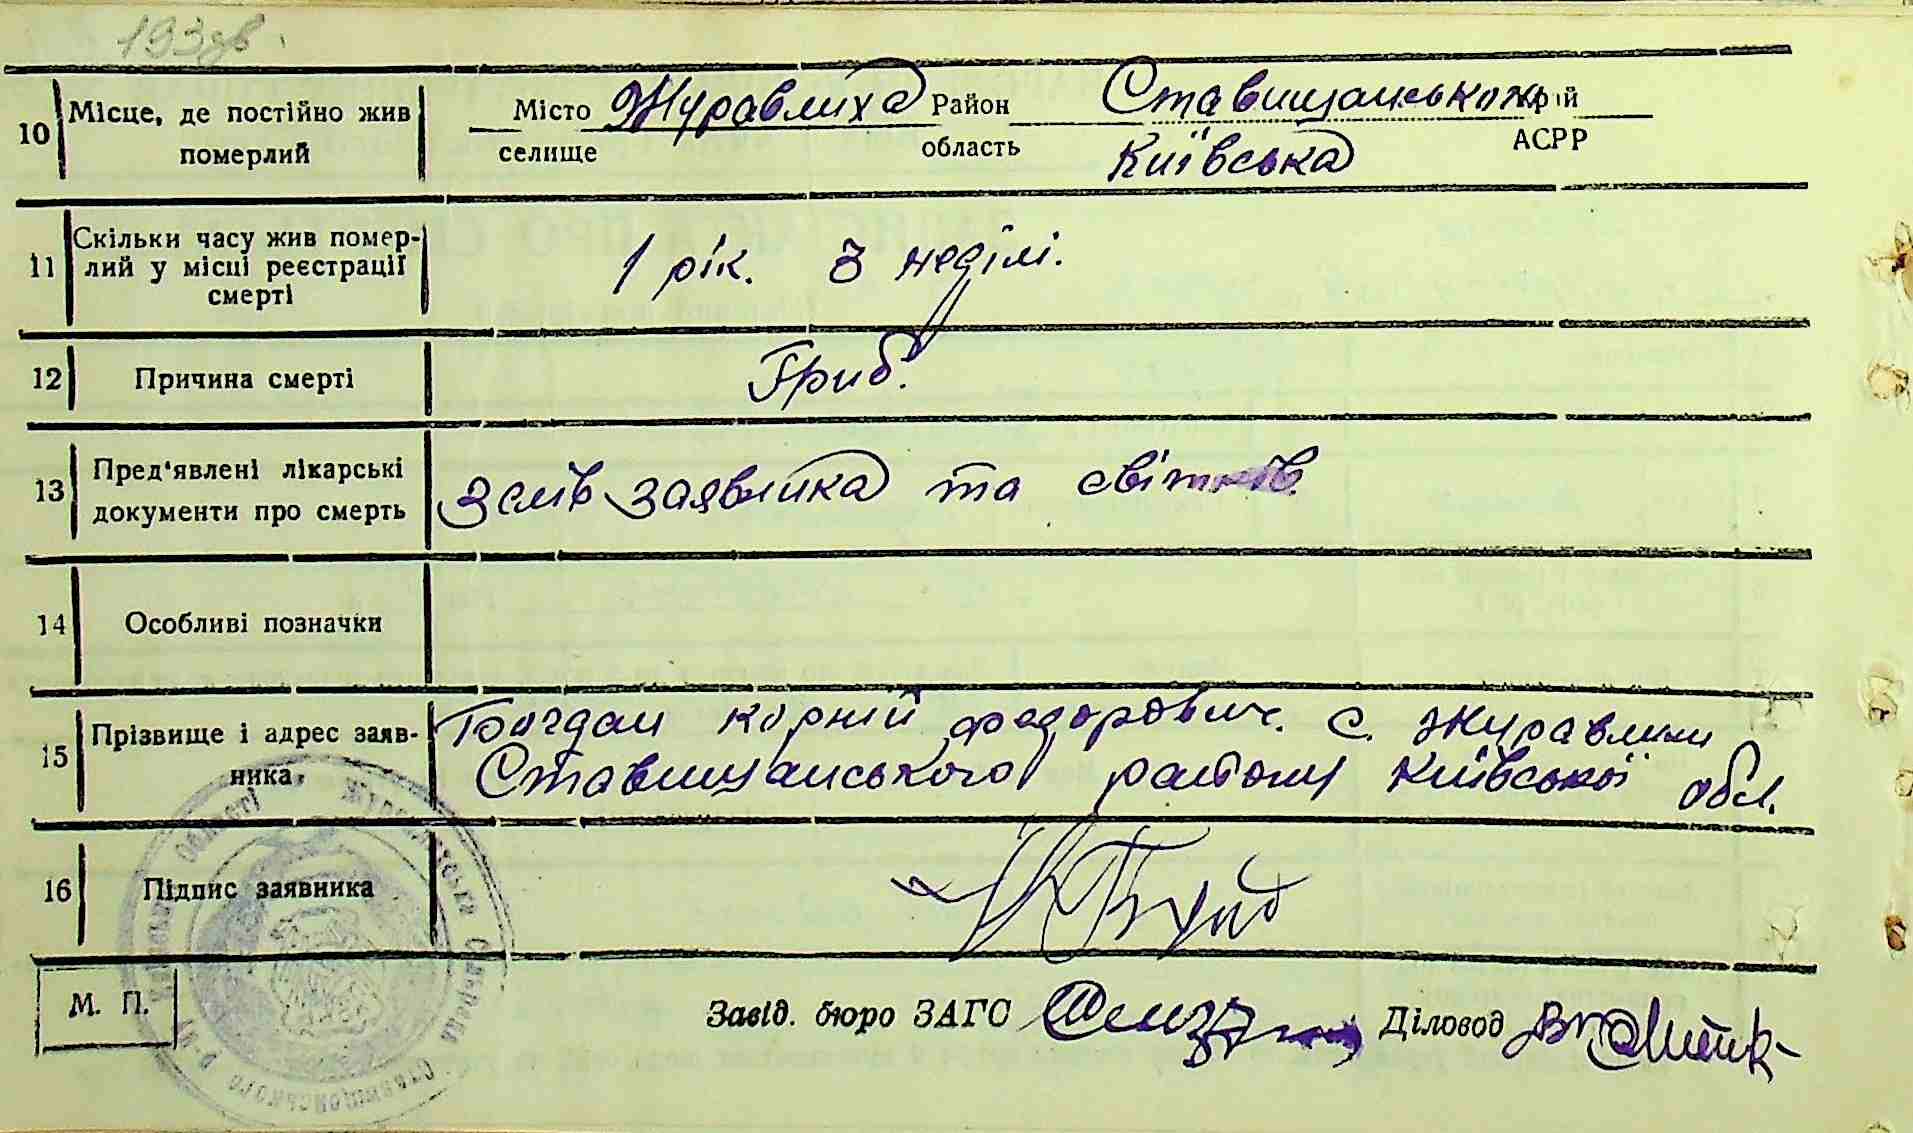 193зв.
10 Місце, де постійно жив померлий
Місто Журавлиха Район Ставищанськой край
селище область Київська АСРР
11 Скільки часу жив помер-
лий у місці реєстрації
смерті
1 рік. 3 неділі.
12 Причина смерті Гриб.
13 Пред'явлені лікарські
документи про смерть
Зслів заявника та світків
14 Особливі позначки
15 Прізвище і адрес заяв-
ника
Богдан корній федорович. с. Журавлихи
Ставищанського району Київської обл.
16 Підпис заявника
М. П.
Завід. бюро ЗАГС Діловод